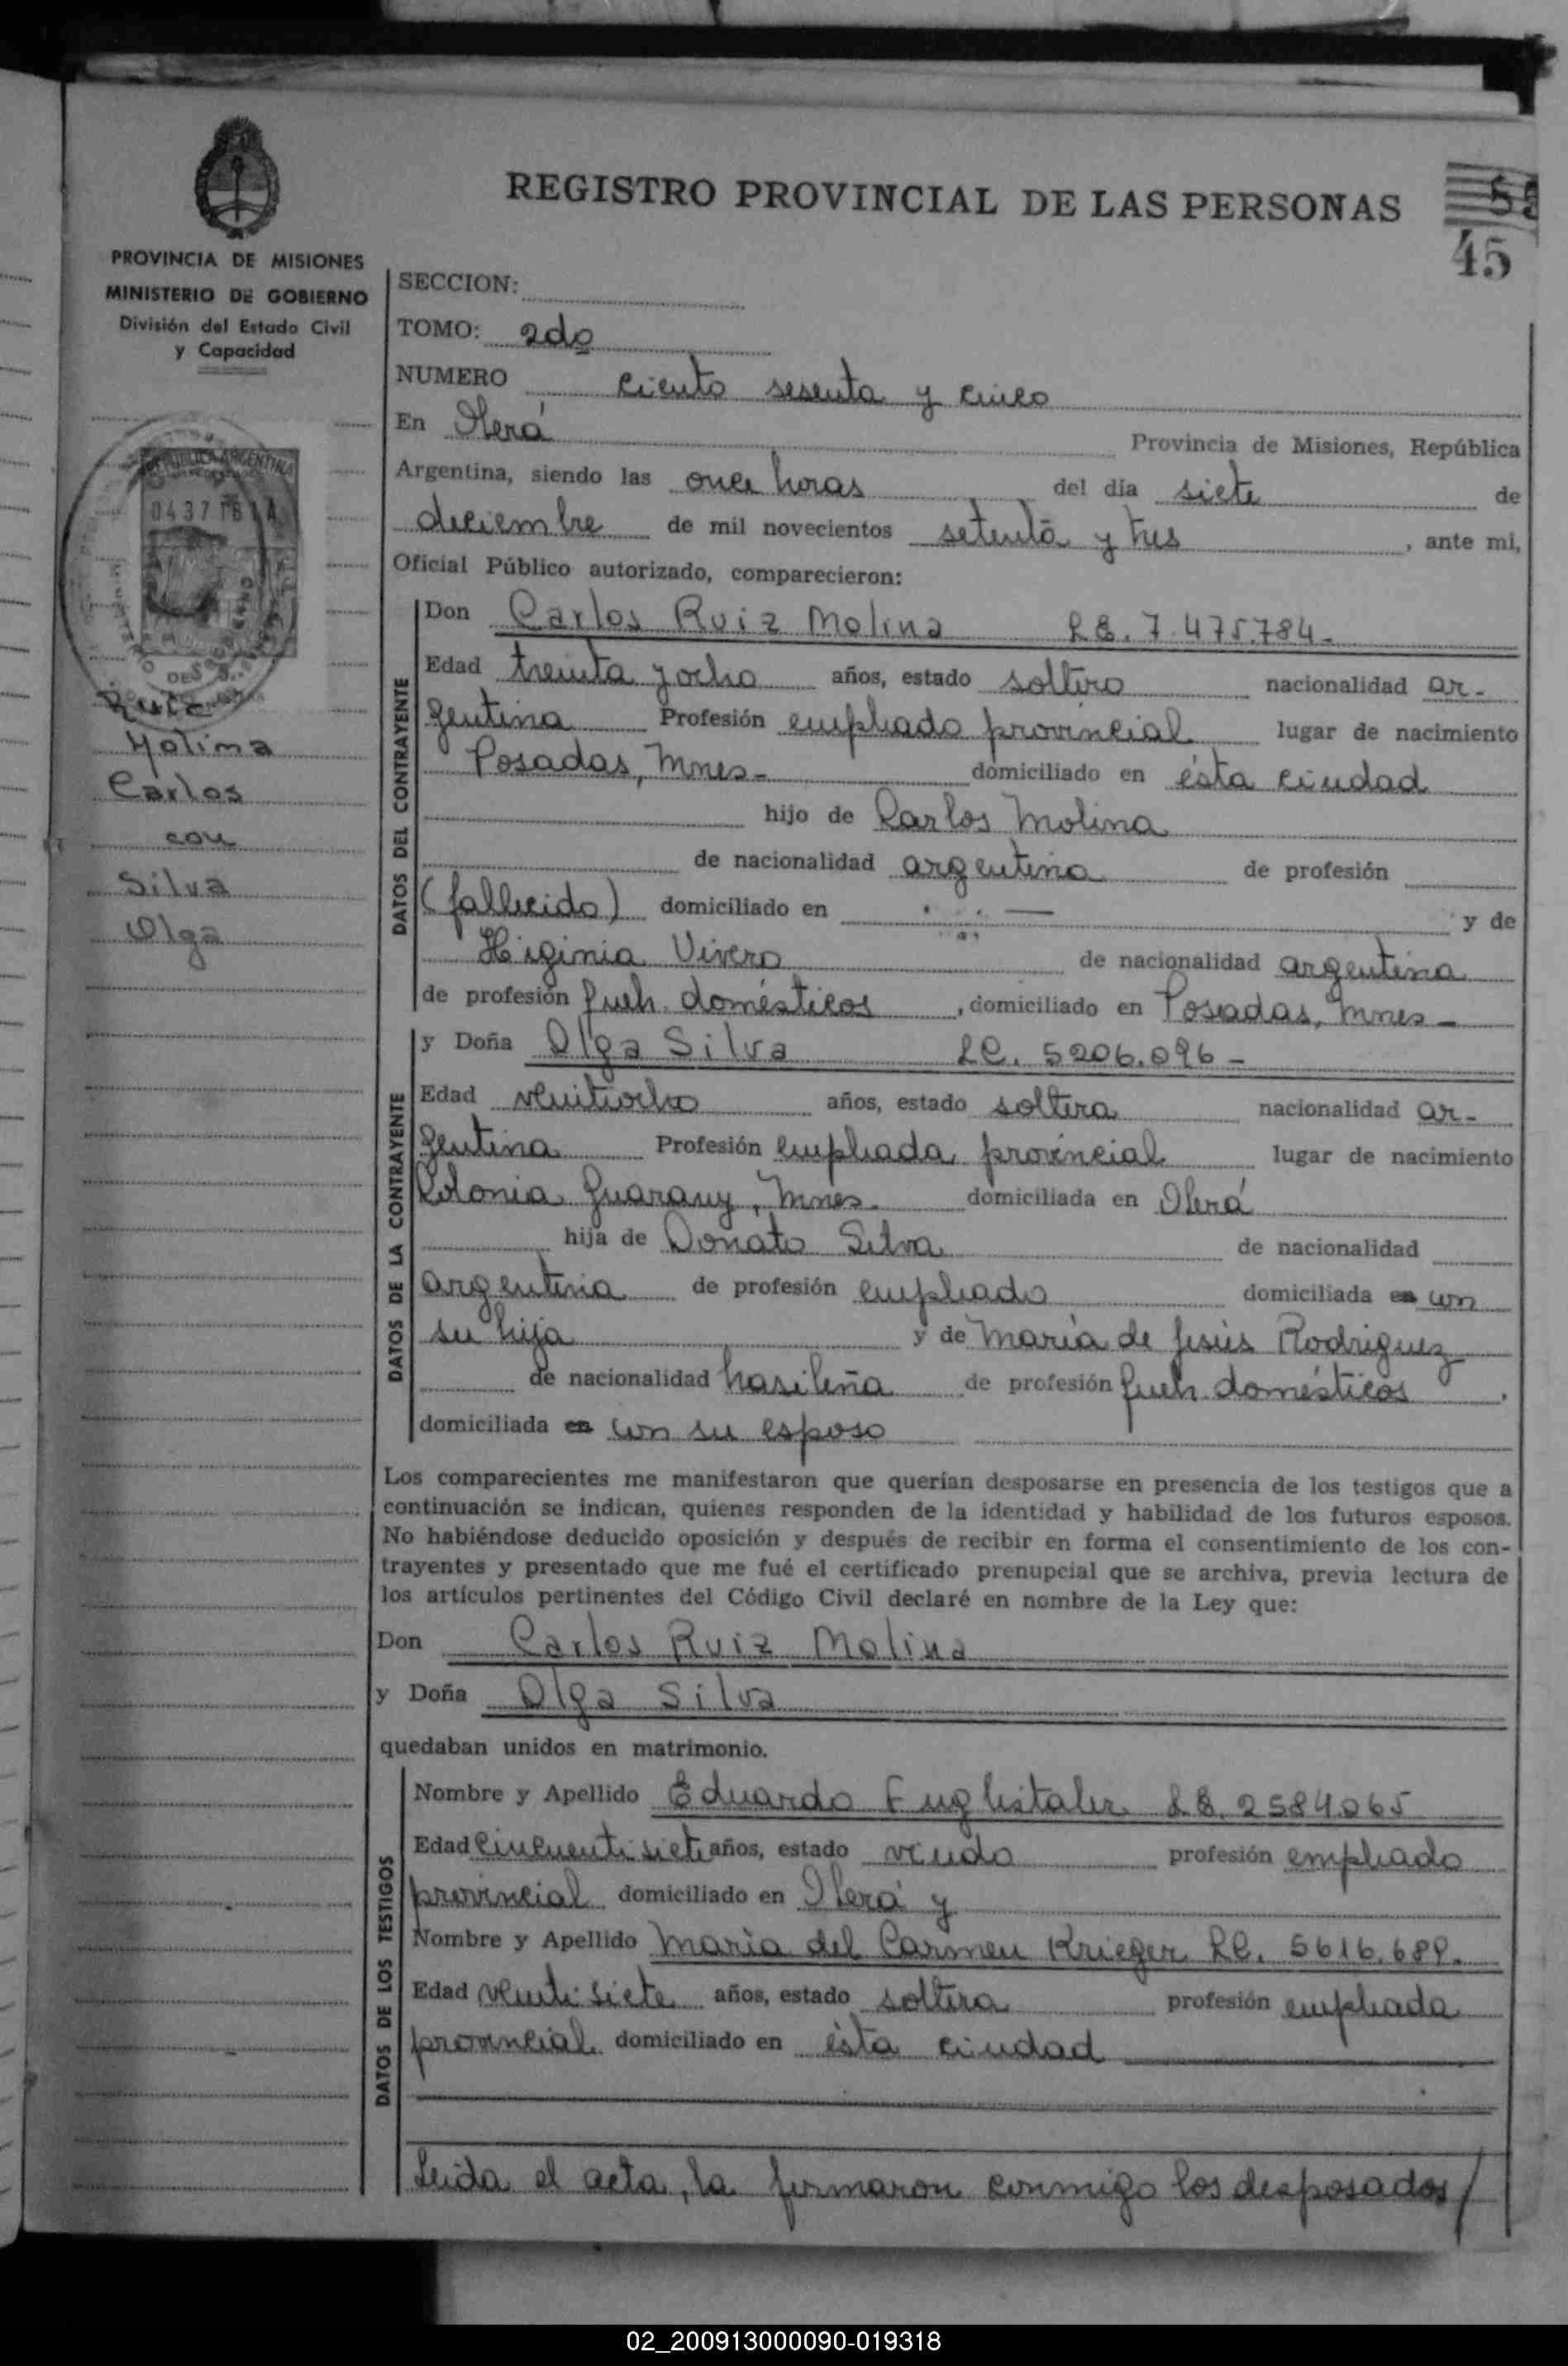 REGISTRO PROVINCIAL DE LAS PERSONAS
45
PROVINCIA DE MISIONES
MINISTERIO DE GOBIERNO
División del Estado Civil
y Capacidad
REPUBLICA ARGENTINA
Ruiz
Molina
Carlos
con
Silva
Olga
SECCION:
TOMO: 2do
NUMERO ciento sesenta y cinco
En Oberá Provincia de Misiones, República
Argentina, siendo las once horas del día siete de
diciembre de mil novecientos setenta y tres, ante mi,
Oficial Público autorizado, comparecieron:
DATOS DEL CONTRAYENTE
Don Carlos Ruiz Molina L.E. 7.475.784-
Edad treinta y ocho años, estado soltero nacionalidad ar-
gentina Profesión empleado provincial lugar de nacimiento
Posadas, Mnes- domiciliado en ésta ciudad
hijo de Carlos Molina
de nacionalidad argentina de profesión
(fallecido) domiciliado en — y de
Higinia Vivero de nacionalidad argentina
de profesión queh. domésticos, domiciliado en Posadas, Mnes-
DATOS DE LA CONTRAYENTE
y Doña Olga Silva L.C. 5206.096-
Edad veintiocho años, estado soltera nacionalidad ar-
gentina Profesión empleada provincial lugar de nacimiento
Colonia Guarany, Mnes. domiciliada en Oberá
hija de Donato Silva de nacionalidad
argentina de profesión empleado domiciliada en con
su hija y de María de Jesús Rodriguez
de nacionalidad brasileña de profesión queh. domésticos,
domiciliada en con su esposo
Los comparecientes me manifestaron que querían desposarse en presencia de los testigos que a
continuación se indican, quienes responden de la identidad y habilidad de los futuros esposos.
No habiéndose deducido oposición y después de recibir en forma el consentimiento de los con-
trayentes y presentado que me fué el certificado prenupcial que se archiva, previa lectura de
los artículos pertinentes del Código Civil declaré en nombre de la Ley que:
Don Carlos Ruiz Molina
y Doña Olga Silva
quedaban unidos en matrimonio.
DATOS DE LOS TESTIGOS
Nombre y Apellido Eduardo L.E. 2584.065
Edad cincuenti siete años, estado viudo profesión empleado
provincial domiciliado en Oberá y
Nombre y Apellido María del Carmen Krieger L.C. 5616.689.
Edad veinti siete años, estado soltera profesión empleada
provincial domiciliado en ésta ciudad
Leida el acta, la firmaron conmigo los desposados/
02_200913000090-019318